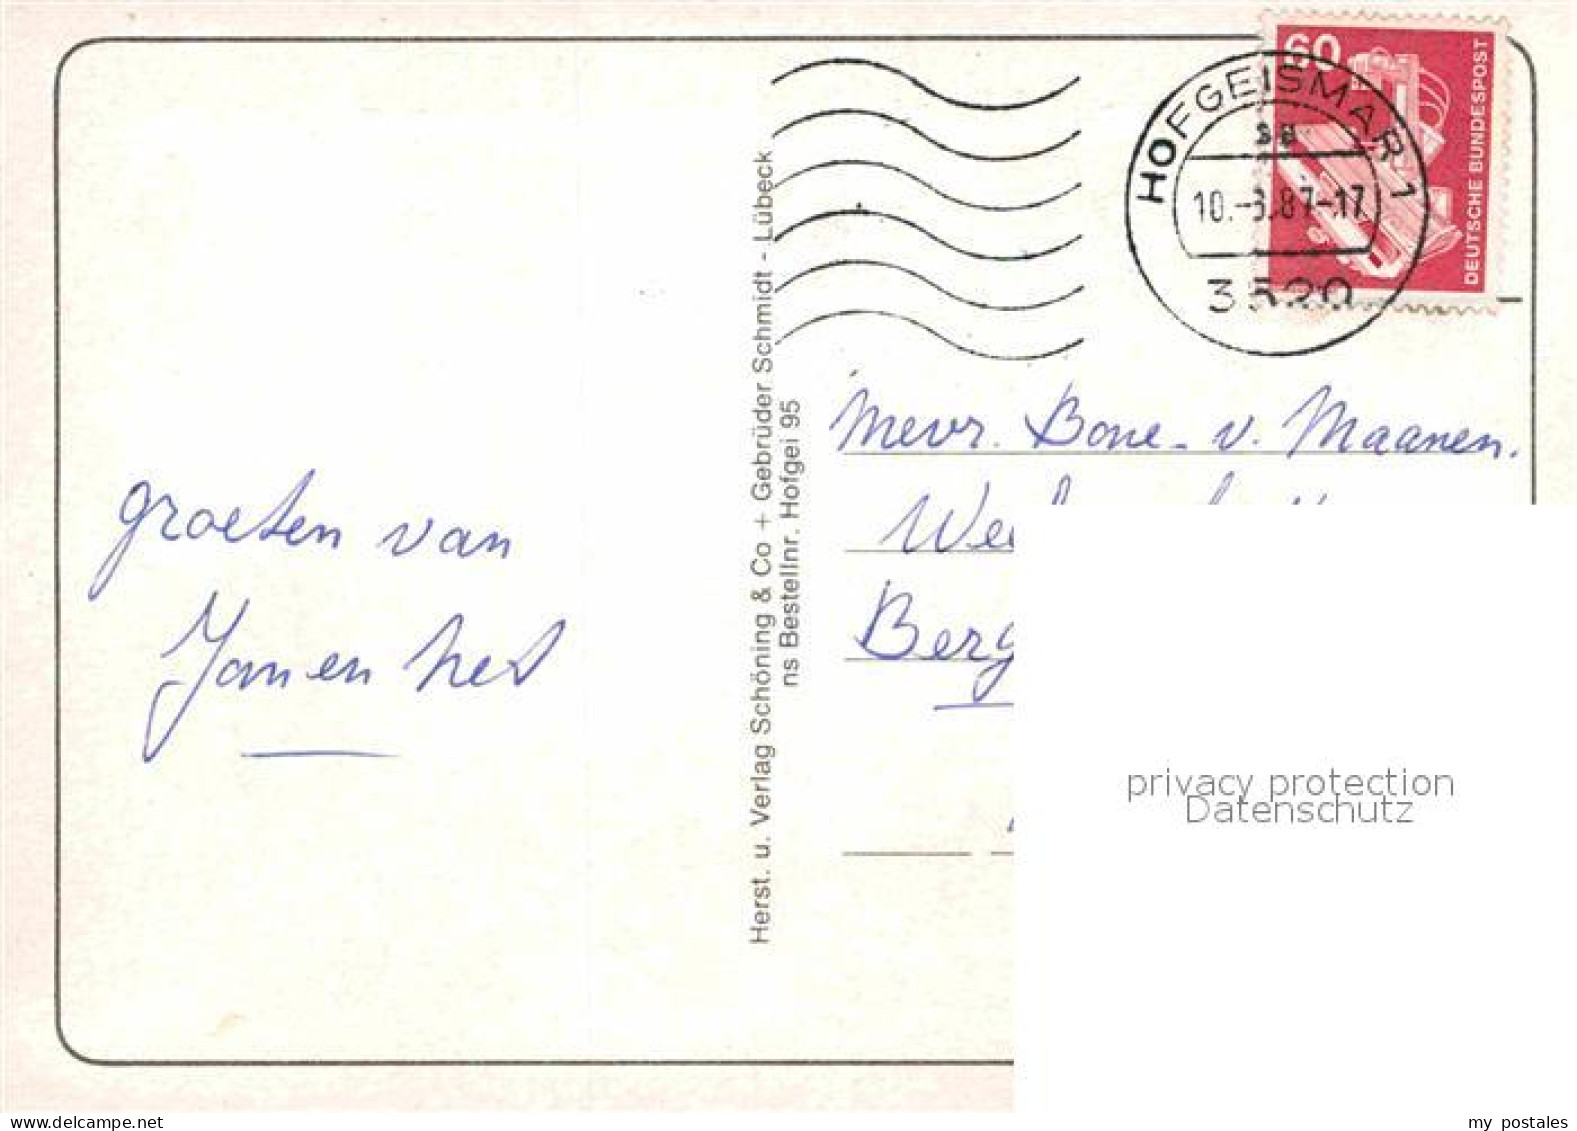 60
DEUTSCHE BUNDESPOST
HOFGEISMAR 1
10.-8.87-17
3520
groeten van
Jan en Net
Herst. u. Verlag Schöning & Co + Gebrüder Schmidt - Lübeck
ns Bestellnr. Hofgei 95
Mevr. Bone - v. Maanen.
Berg
privacy protection
Datenschutz
www.delcampe.net
my postales